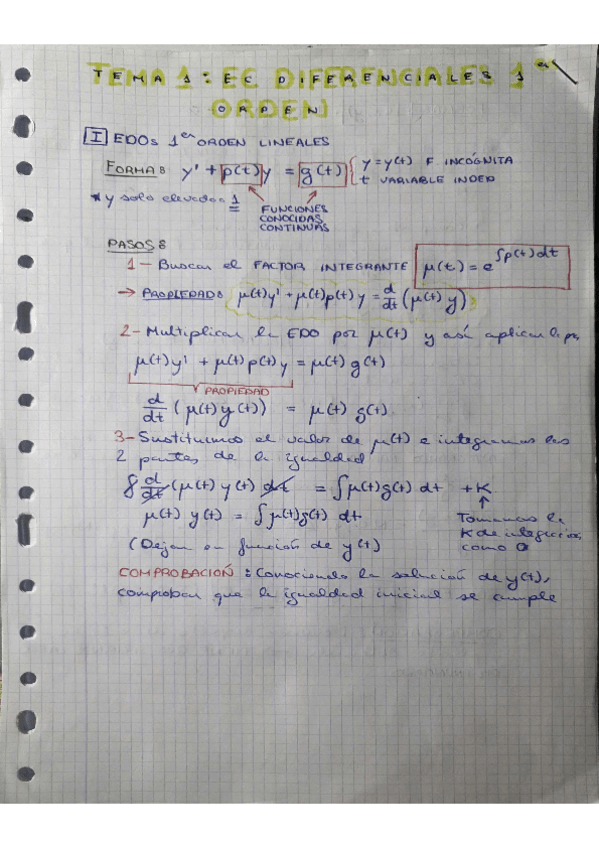 TEMA 1: EC DIFERENCIALES 1er
ORDEN
I EDOs 1er ORDEN LINEALES
FORMA: y' + p(t)y = g(t) { y = y(t) F. INCÓGNITA
t VARIABLE INDEP
* y solo elevado a 1
FUNCIONES
CONOCIDAS
CONTINUAS
PASOS:
1- Buscar el FACTOR INTEGRANTE μ(t) = e^∫p(t)dt
→ PROPIEDAD: μ(t)y' + μ(t)p(t)y = d/dt (μ(t)y)
2- Multiplicar la EDO por μ(t) y así aplicar la p,
μ(t)y' + μ(t)p(t)y = μ(t) g(t)
PROPIEDAD
d/dt (μ(t)y(t)) = μ(t) g(t)
3- Sustituimos el valor de μ(t) e integramos las
2 partes de la igualdad
∫ d/dt (μ(t) y(t)) dt = ∫μ(t)g(t) dt + K
μ(t) y(t) = ∫μ(t)g(t) dt
Tomamos la
K de integración
como 0
(Dejar en función de y(t))
COMPROBACIÓN: Conociendo la solución de y(t),
comprobar que la igualdad inicial se cumple